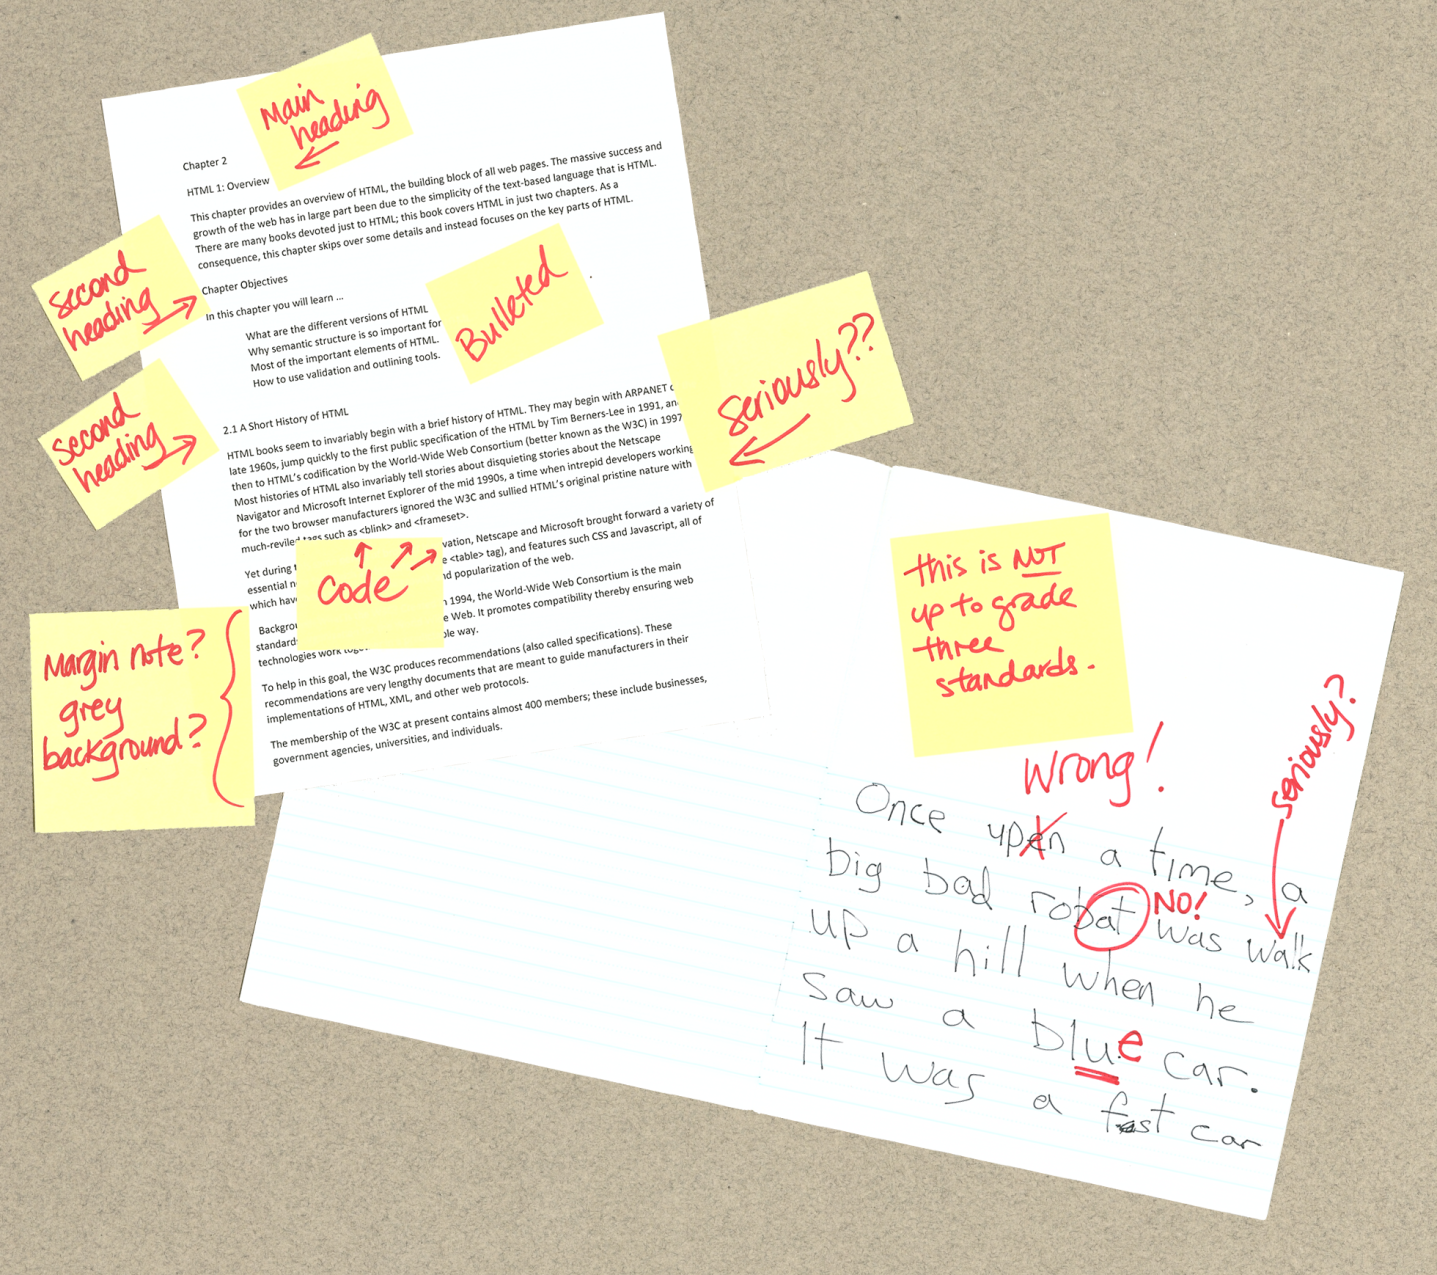 Main
heading
Chapter 2
HTML 1: Overview
This chapter provides an overview of HTML, the building block of all web pages. The massive success and
growth of the web has in large part been due to the simplicity of the text-based language that is HTML.
There are many books devoted just to HTML; this book covers HTML in just two chapters. As a
consequence, this chapter skips over some details and instead focuses on the key parts of HTML.
second
heading
Chapter Objectives
In this chapter you will learn ...
What are the different versions of HTML
Why semantic structure is so important for
Most of the important elements of HTML.
How to use validation and outlining tools.
Bulleted
second
heading
2.1 A Short History of HTML
HTML books seem to invariably begin with a brief history of HTML. They may begin with ARPANET
late 1960s, jump quickly to the first public specification of the HTML by Tim Berners-Lee in 1991, and
then to HTML's codification by the World-Wide Web Consortium (better known as the W3C) in 1997
Most histories of HTML also invariably tell stories about disquieting stories about the Netscape
Navigator and Microsoft Internet Explorer of the mid 1990s, a time when intrepid developers working
for the two browser manufacturers ignored the W3C and sullied HTML's original pristine nature with
much-reviled tags such as <blink> and <frameset>.
seriously??
Yet during vation, Netscape and Microsoft brought forward a variety of
essential <table> tag), and features such CSS and Javascript, all of
which have popularization of the web.
code
1994, the World-Wide Web Consortium is the main
standard Web. It promotes compatibility thereby ensuring web
technologies work way.
To help in this goal, the W3C produces recommendations (also called specifications). These
recommendations are very lengthy documents that are meant to guide manufacturers in their
implementations of HTML, XML, and other web protocols.
The membership of the W3C at present contains almost 400 members; these include businesses,
government agencies, universities, and individuals.
Margin note?
grey
background?
this is NOT
up to grade
three
standards.
Wrong!
seriously?
Once upen a time, a
big bad robat was walk
NO!
up a hill when he
saw a blue car.
It was a fast car